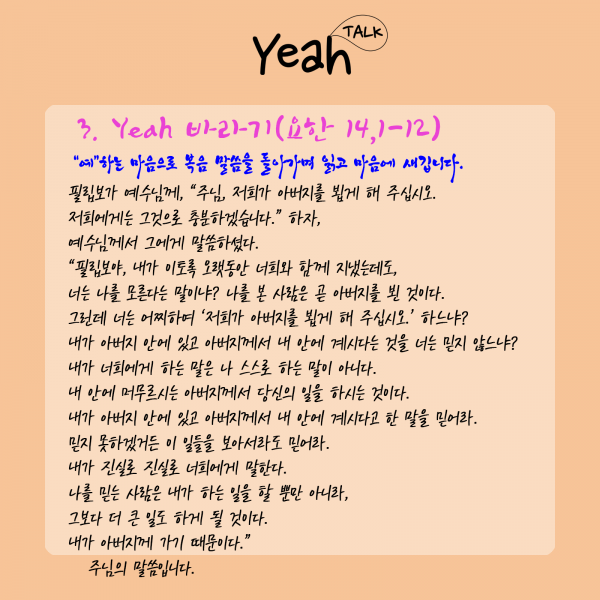 Yeah TALK
3. Yeah 바라기(요한 14,1-12)
"예"하는 마음으로 복음 말씀을 돌아가며 읽고 마음에 새깁니다.
필립보가 예수님께, “주님, 저희가 아버지를 뵙게 해 주십시오.
저희에게는 그것으로 충분하겠습니다.” 하자,
예수님께서 그에게 말씀하셨다.
“필립보야, 내가 이토록 오랫동안 너희와 함께 지냈는데도,
너는 나를 모른다는 말이냐? 나를 본 사람은 곧 아버지를 뵌 것이다.
그런데 너는 어찌하여 ‘저희가 아버지를 뵙게 해 주십시오.’ 하느냐?
내가 아버지 안에 있고 아버지께서 내 안에 계시다는 것을 너는 믿지 않느냐?
내가 너희에게 하는 말은 나 스스로 하는 말이 아니다.
내 안에 머무르시는 아버지께서 당신의 일을 하시는 것이다.
내가 아버지 안에 있고 아버지께서 내 안에 계시다고 한 말을 믿어라.
믿지 못하겠거든 이 일들을 보아서라도 믿어라.
내가 진실로 진실로 너희에게 말한다.
나를 믿는 사람은 내가 하는 일을 할 뿐만 아니라,
그보다 더 큰 일도 하게 될 것이다.
내가 아버지께 가기 때문이다.”
주님의 말씀입니다.